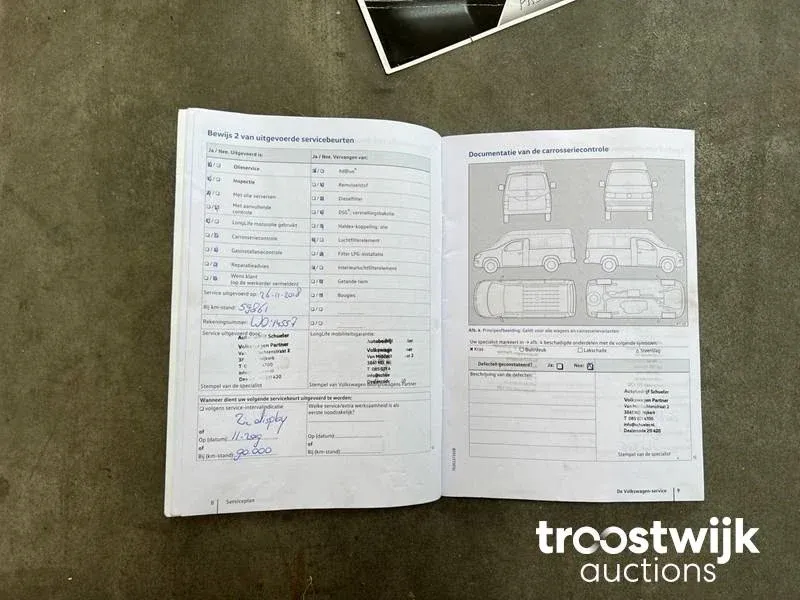 Bewijs 2 van uitgevoerde servicebeurten
Ja / Nee, Uitgevoerd is:
Ja / Nee, Vervangen van:
Olieservice
AdBlue®
Inspectie
Remvloeistof
Met olie verversen
Dieselfilter
Met aanvullende
controle
DSG®, versnellingsbakolie
LongLife motorolie gebruikt
Haldex-koppeling, olie
Carrosseriecontrole
Luchtfilterelement
Gasinstallatiecontrole
Filter LPG-installatie
Reparatieadvies
Interieurluchtfilterelement
Wens klant
(op de werkorder vermelden)
Getande riem
Bougies
Service uitgevoerd op: 26-11-2018
Bij km-stand: 59861
Rekeningnummer: WO14557
Service uitgevoerd door:
LongLife mobiliteitsgarantie:
Autobedrijf Schueler
Volkswagen Partner
Dealercode 211 420
Stempel van de specialist
Autobedrijf
Volkswagen
Stempel van Volkswagen Bedrijfswagens Partner
Wanneer dient uw volgende servicebeurt uitgevoerd te worden:
volgens service-intervalindicatie
Zie display
of
Op (datum): 11-2019
of
Bij (km-stand): 90.000
Welke service/extra werkzaamheid is als
eerste noodzakelijk?
Op (datum):
of
Bij (km-stand):
8 Serviceplan
Documentatie van de carrosseriecontrole
Afb. 4 Principeafbeelding: Geldt voor alle wagens en carrosserievarianten
Uw specialist markeert in → afb. 4 beschadigde onderdelen met de volgende symbolen:
Kras
Buil/deuk
Lakschade
Steenslag
Defect(en) geconstateerd?
Ja:
Nee:
Beschrijving van de defecten:
Autobedrijf Schueler
Volkswagen Partner
Van Middachtenstraat 2
3861 MD Nijkerk
T 085 021 4700
info@schueler.nl
Dealercode 211 420
Stempel van de specialist
De Volkswagen-service 9
troostwijk
auctions